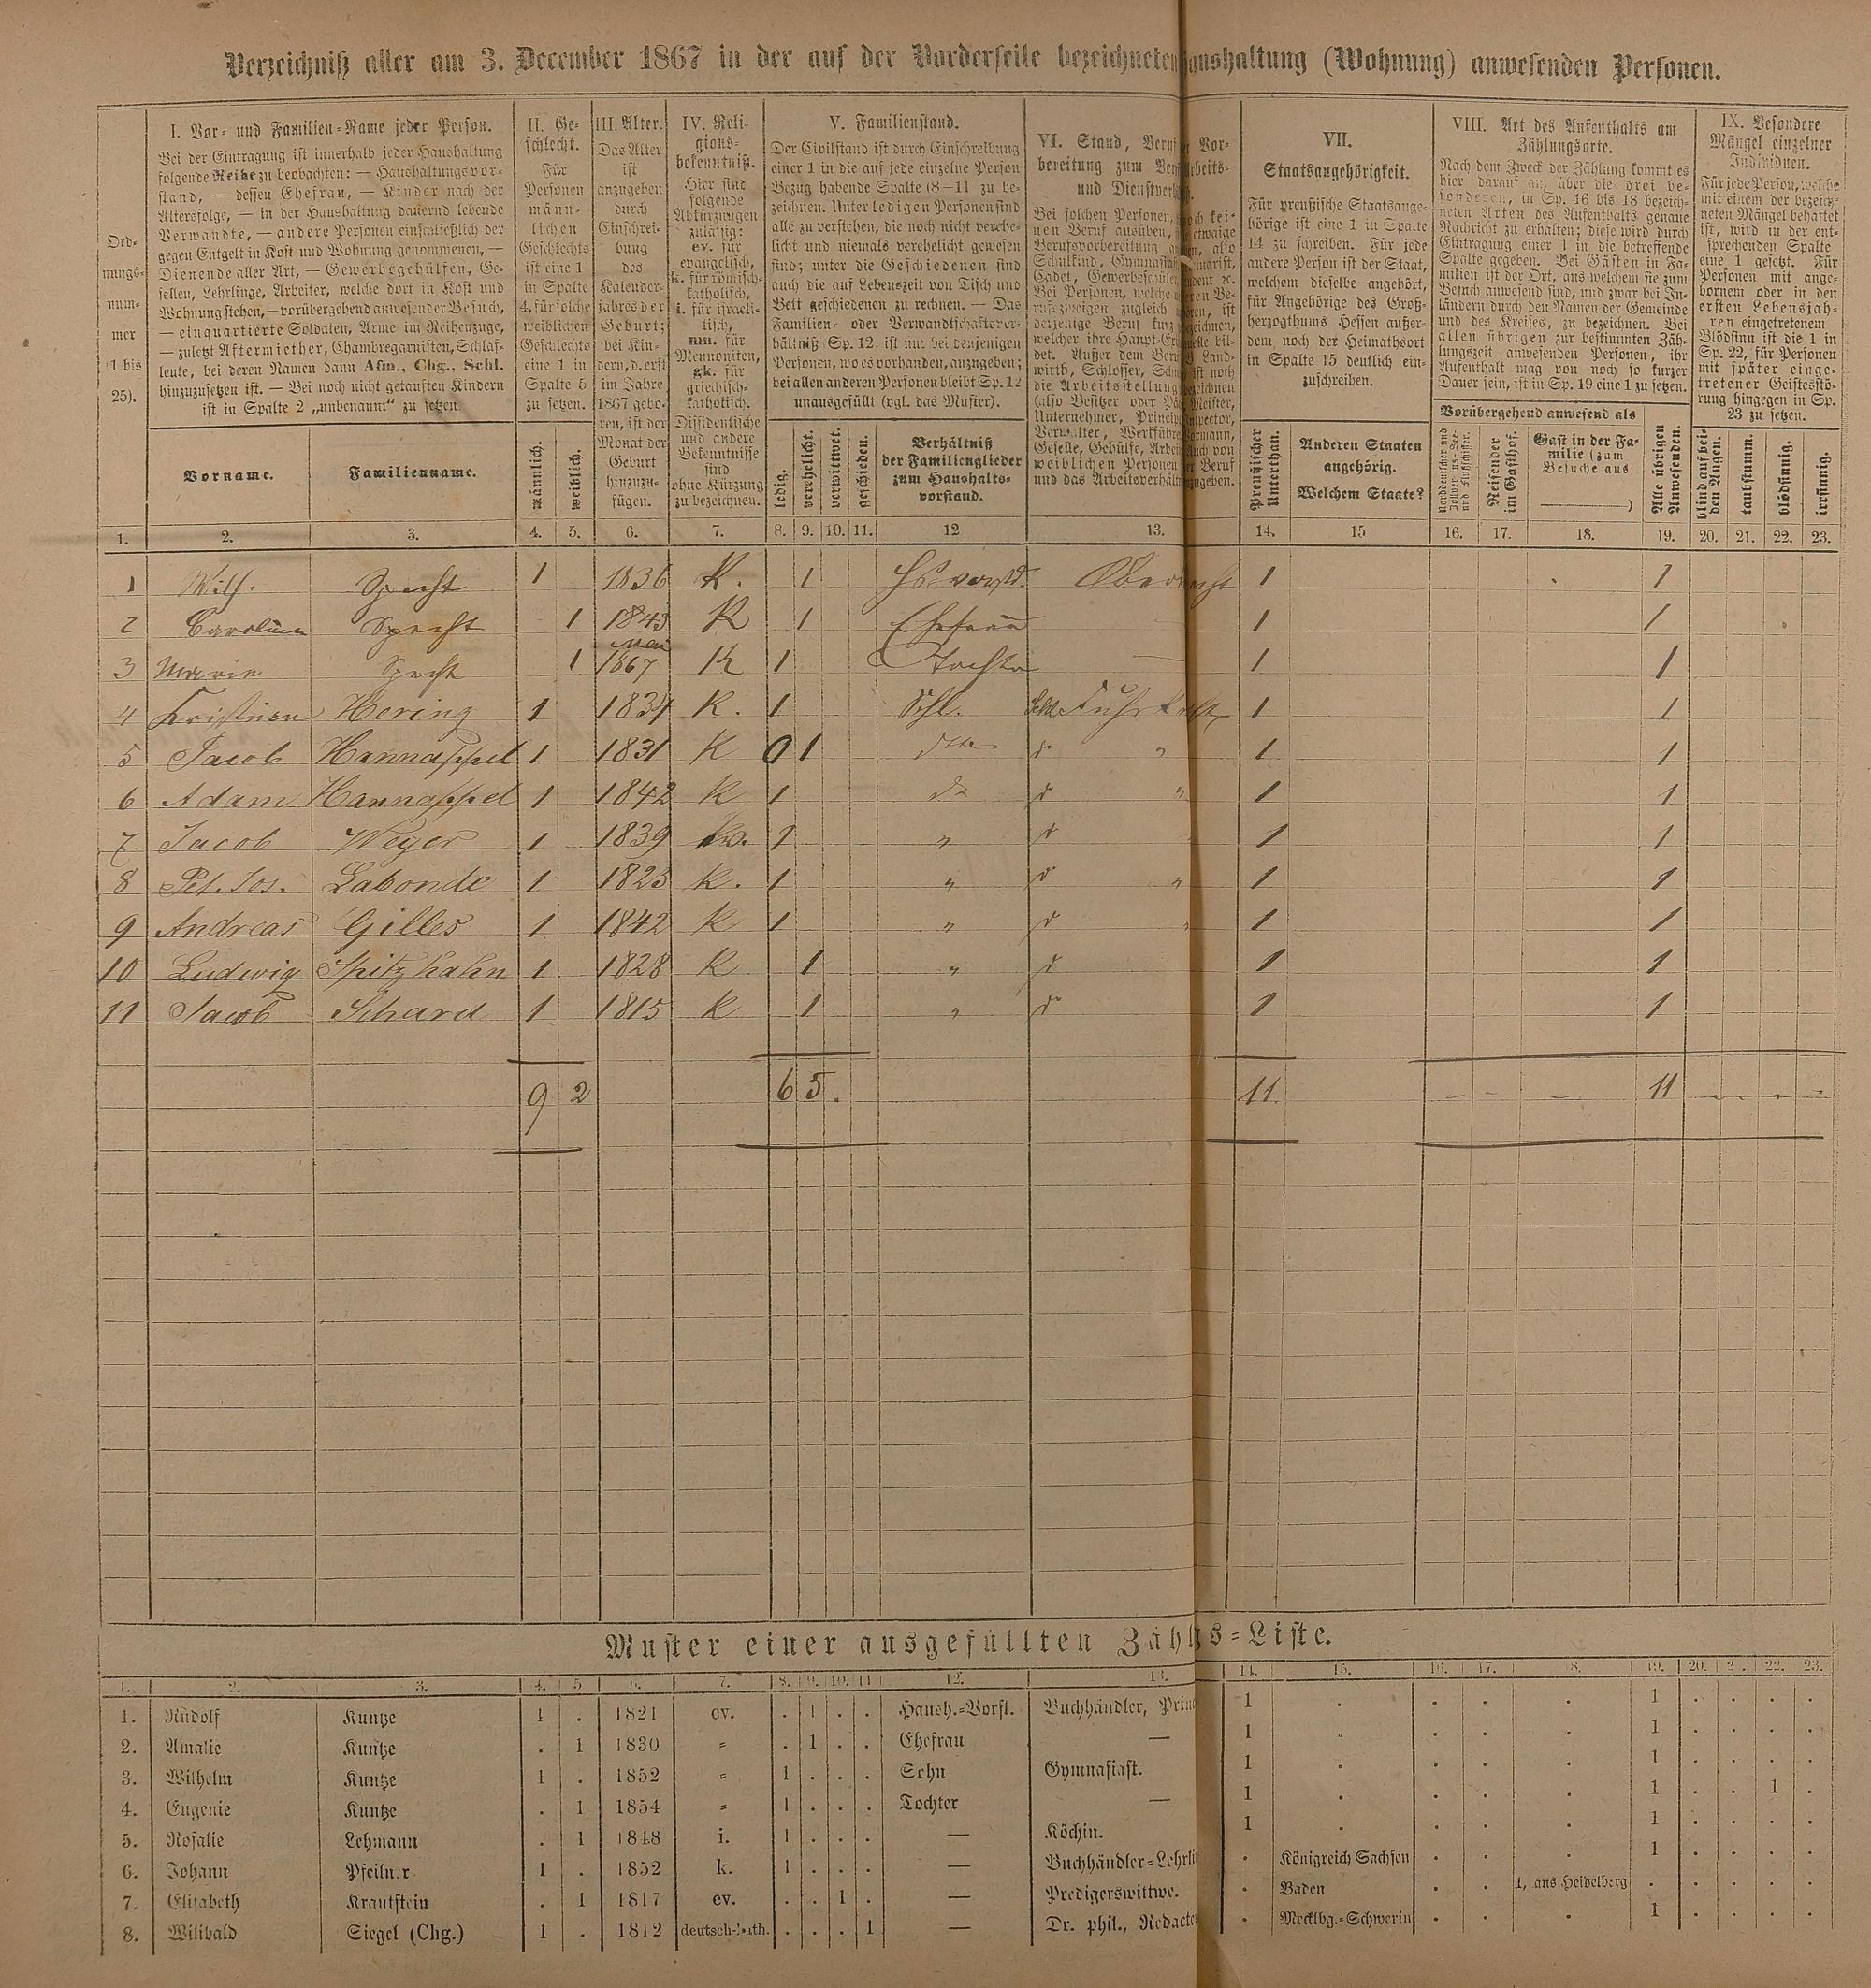 Verzeichniß aller am 3. December 1867 in der auf der Vorderseite bezeichneten aushaltung (Wohnung) anwesenden Personen.
Ord-
nungs-
num-
mer
(1 bis
25).
I. Vor- und Familien-Name jeder Person.
Bei der Eintragung ist innerhalb jeder Haushaltung
folgende Reihe zu beobachten: — Haushaltungsvor-
stand, — dessen Ehefrau, — Kinder nach der
Altersfolge, — in der Haushaltung dauernd lebende
Verwandte, — andere Personen einschließlich der
gegen Entgelt in Kost und Wohnung genommenen, —
Dienende aller Art, — Gewerbsgehülfen, Ge-
sellen, Lehrlinge, Arbeiter, welche dort in Kost und
Wohnung stehen, — vorübergehend anwesender Besuch,
— einquartierte Soldaten, Arme im Reihenzuge,
— zuletzt Aftermiether, Chambregarnisten, Schlaf-
leute, bei deren Namen dann Afm., Chg., Schl.
hinzuzusetzen ist. — Bei noch nicht getauften Kindern
ist in Spalte 2 „unbenannt“ zu setzen
Vorname.
Familienname.
II. Ge-
schlecht.
Für
Personen
männ-
lichen
Geschlechts
ist eine 1
in Spalte
4, für solche
weiblichen
Geschlechts
eine 1 in
Spalte 5
zu setzen.
männlich.
weiblich.
III. Alter.
Das Alter
ist
anzugeben
durch
Einschrei-
bung
des
Kalender-
jahres der
Geburt;
bei Kin-
dern, d. erst
im Jahre
1867 gebo-
ren, ist der
Monat der
Geburt
hinzuzu-
fügen.
IV. Reli-
gions-
bekenntniß.
Hier sind
folgende
Abkürzungen
zulässig:
ev. für
evangelisch,
k. für römisch-
katholisch,
i. für israeli-
tisch,
mn. für
Mennoniten,
gk. für
griechisch-
katholisch.
Dissidentische
und andere
Bekenntnisse
sind
ohne Kürzung
zu bezeichnen.
V. Familienstand.
Der Civilstand ist durch Einschreibung
einer 1 in die auf jede einzelne Person
Bezug habende Spalte (8–11 zu be-
zeichnen. Unter ledigen Personen sind
alle zu verstehen, die noch nicht vereh-
licht und niemals verehelicht gewesen
sind; unter die Geschiedenen sind
auch die auf Lebenszeit von Tisch und
Bett geschiedenen zu rechnen. — Das
Familien- oder Verwandtschaftsver-
hältniß Sp. 12. ist nur bei denjenigen
Personen, wo es vorhanden, anzugeben;
bei allen anderen Personen bleibt Sp. 12
unausgefüllt (vgl. das Muster).
ledig.
verehelicht.
verwittwet.
geschieden.
Verhältniß
der Familienglieder
zum Haushalts-
vorstand.
VI. Stand, Beruf Vor-
bereitung zum Ber Arbeits-
und Dienstver
Bei solchen Personen, och kei-
nen Beruf ausüben, etwaige
Berufsvorbereitung also
Schulkind, Gymnasias inarist,
Cadet, Gewerbeschüler dent ꝛc.
VII.
Staatsangehörigkeit.
Für preußische Staatsange-
hörige ist eine 1 in Spalte
14 zu schreiben. Für jede
andere Person ist der Staat,
welchem dieselbe angehört,
für Angehörige des Groß-
herzogthums Hessen außer-
dem noch der Heimathsort
in Spalte 15 deutlich ein-
zuschreiben.
Preußischer
Unterthan.
Anderen Staaten
angehörig.
Welchem Staate?
VIII. Art des Aufenthalts am
Zählungsorte.
Nach dem Zweck der Zählung kommt es
hier darauf an, über die drei be-
sonderen, in Sp. 16 bis 18 bezeich-
neten Arten des Aufenthalts genaue
Nachricht zu erhalten; diese wird durch
Eintragung einer 1 in die betreffende
Spalte gegeben. Bei Gästen in Fa-
milien ist der Ort, aus welchem sie zum
Besuch anwesend sind, und zwar bei In-
ländern durch den Namen der Gemeinde
und des Kreises, zu bezeichnen. Bei
allen übrigen zur bestimmten Zäh-
lungszeit anwesenden Personen, ihr
Aufenthalt mag von noch so kurzer
Dauer sein, ist in Sp. 19 eine 1 zu setzen.
Vorübergehend anwesend als
Reisender
im Gasthof.
Gast in der Fa-
milie (zum
Besuche aus
)
Alle übrigen
Anwesenden.
IX. Besondere
Mängel einzelner
Individuen.
Für jede Person, welche
mit einem der bezeich-
neten Mängel behaftet
ist, wird in der ent-
sprechenden Spalte
eine 1 gesetzt. Für
Personen mit ange-
bornem oder in den
ersten Lebensjah-
ren eingetretenem
Blödsinn ist die 1 in
Sp. 22, für Personen
mit später einge-
tretener Geistesstö-
rung hingegen in Sp.
23 zu setzen.
blind auf bei-
den Augen.
taubstumm.
blödsinnig.
irrsinnig.
1. 2. 3. 4. 5. 6. 7. 8. 9. 10. 11. 12 13. 14. 15 16. 17. 18. 19. 20. 21. 22. 23.
1 Wilh. Specht 1 1836 K. 1 1 1
2 Carolina Specht 1 1843 K 1 Ehefrau 1 1
Mai
3 Maria Specht 1 1867 K 1 Tochter — 1 1
4 Kristian Hering 1 1834 K. 1 Schl. 1 1
5 Jacob Hannappel 1 1831 K 0 1 dtto d " 1 1
6 Adam Hannappel 1 1842 K 1 do d " 1 1
7. Jacob Weyer 1 1839 1 " d 1 1
8 Pet. Jos. Labonde 1 1823 K. 1 " d " 1 1
9 Andreas Gilles 1 1842 K 1 " d " 1 1
10 Ludwig Spitzhahn 1 1828 K 1 " d 1 1
11 Jacob Schard 1 1815 K 1 " d 1 1
9 2 6 5. 11. - - - 11 - - - -
Muster einer ausgefüllten Zähl s-Liste.
1. 2. 3. 4. 5 6. 7. 8. 9. 10. 11 12. 13. 14. 15. 16. 17. 8. 19. 20. 2. 22. 23.
1. Rudolf Kuntze 1 . 1821 ev. . 1 . . Haush.-Vorst. Buchhändler, Prin 1 . . . . 1 . . . .
2. Amalie Kuntze . 1 1830 = . 1 . . Ehefrau — 1 . . . . 1 . . . .
3. Wilhelm Kuntze 1 . 1852 = 1 . . . Sohn Gymnasiast. 1 . . . . 1 . . . .
4. Eugenie Kuntze . 1 1854 = 1 . . . Tochter — 1 . . . . 1 . . 1 .
5. Rosalie Lehmann . 1 1848 i. 1 . . . — Köchin. 1 . . . . 1 . . . .
6. Johann Pfeiln.r 1 . 1852 k. 1 . . . — Buchhändler-Lehrli . Königreich Sachsen . . . 1 . . . .
7. Elisabeth Krautstein . 1 1817 ev. . . 1 . — Predigerswittwe. . Baden . . 1, aus Heidelberg . . . . .
8. Wilibald Siegel (Chg.) 1 . 1812 deutsch-kath. . . . 1 — Dr. phil., Redacte . Mecklbg.-Schwerin . . . 1 . . . .